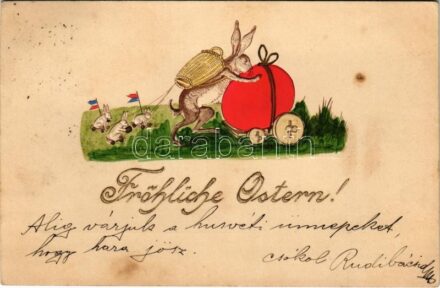 Fröhliche Ostern!
Alig várjuk a husvéti ünnepeket,
hogy hara jösz.
csókol Rudibácsid